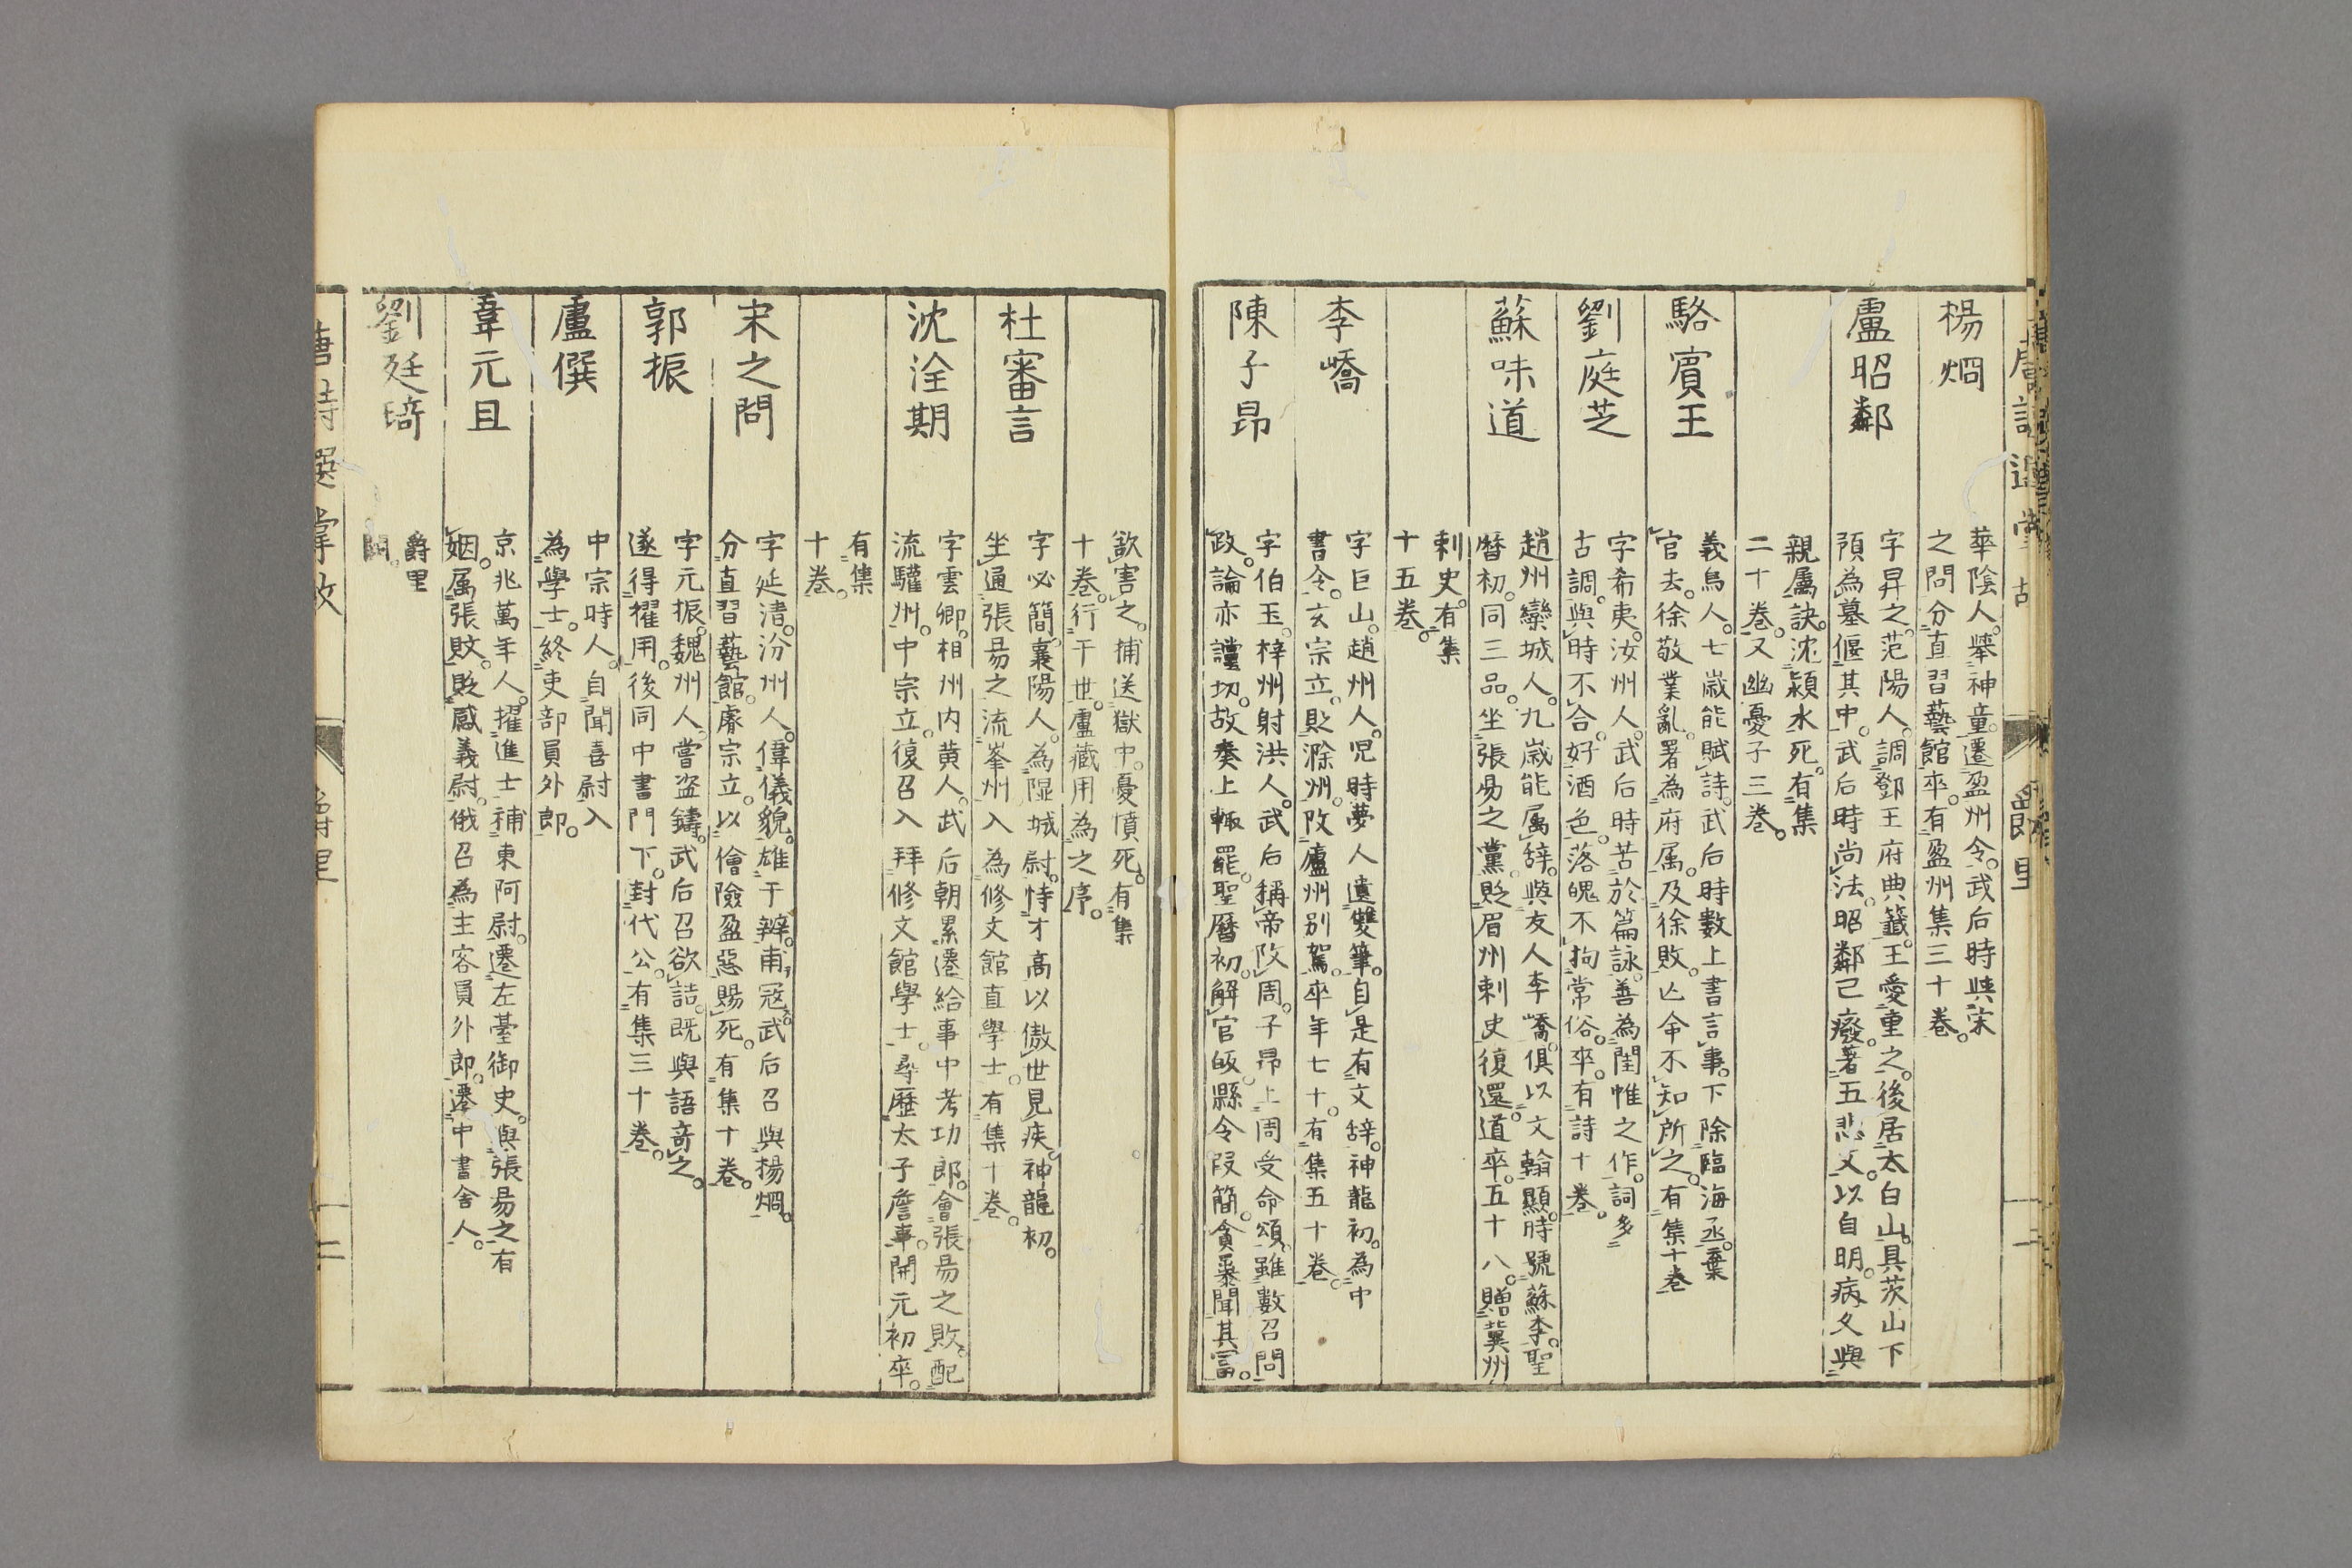 楊烱
華陰人。舉神童。遷盈州令。武后時與宋
之問分直習藝館卒。有盈州集三十卷。
盧昭鄰
字昇之。范陽人。調鄧王府典籤。王愛重之。後居太白山。具茨山下
預為墓偃其中。武后時尚法。昭鄰已癈。著五悲文。以自明。病久與
親屬訣。沈潁水死。有集
二十卷。又幽憂子三卷。
駱賓王
義烏人。七嵗能賦詩。武后時數上書言事。下除臨海丞。棄
官去。徐敬業亂。署為府属。及徐敗。亡命不知所之。有集十卷
劉庭芝
字希夷。汝州人。武后時苦於篇詠。善為閨帷之作。詞多
古調。與時不合。好酒色。落魄不拘常俗。卒。有詩十卷。
蘇味道
趙州欒城人。九嵗能属辞。與友人李嶠。俱以文翰顯。時號蘇李。聖
曆初。同三品。坐張易之黨。貶眉州刺史復還。道卒。五十八。贈冀州
刺史。有集
十五卷。
李嶠
字巨山。趙州人。児時夢人遺雙筆。自是有文辞。神龍初。為中
書令。玄宗立。貶滁州。改廬州别駕。卒年七十。有集五十卷。
陳子昂
字伯玉。梓州射洪人。武后稱帝改周。子昂上周受命頌。雖數召問
政。論亦讜切。故奏上輙罷。聖曆初。解官皈。縣令叚簡。貪暴聞其冨。
欲害之。捕送獄中。憂憤死。有集
十卷。行于世。盧藏用為之序。
杜審言
字必簡。襄陽人。為隰城尉。恃才高以傲世見疾。神龍初。
坐通張易之流峯州入為修文館直學士。有集十卷。
沈淦期
字雲卿。相州内黄人。武后朝累遷給事中考功郎。會張易之敗。配
流驩州。中宗立。復召入拜修文館學士。尋歷太子詹事。開元初卒。
有集
十卷。
宋之問
字延清。汾州人。偉儀貌。雄于辨。甫冠。武后召與楊烱。
分直習藝館。睿宗立。以儈險盈惡賜死。有集十卷。
郭振
字元振。魏州人。嘗盗鑄。武后召欲詰。既與語竒之。
遂得擢用。後同中書門下。封代公。有集三十卷。
盧僎
中宗時人。自聞喜尉入
為學士。終吏部員外郎。
韋元旦
京兆萬年人。擢進士補東阿尉。遷左臺御史。與張易之有
姻属。張敗。貶感義尉。俄召為主客員外郎。遷中書舍人。
劉廷琦
爵里
闕。
唐詩選掌故
爵里
二